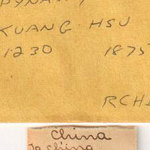 DYNASTY
KUANG HSU
1230 1875
RCHI
China
To China